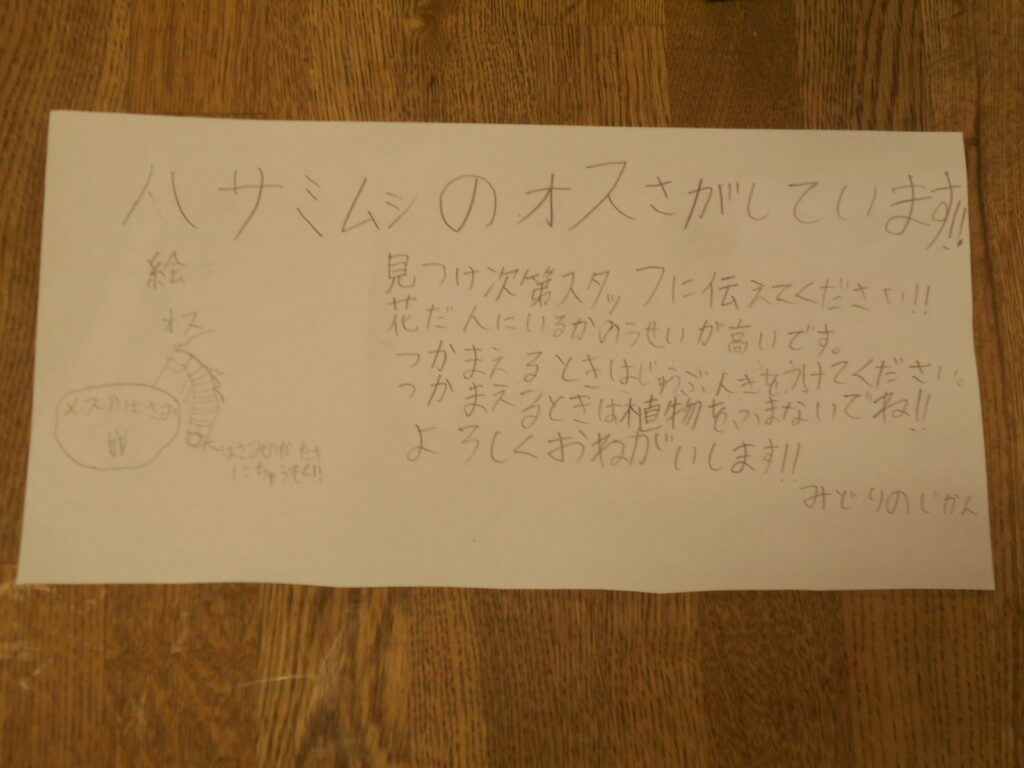 ハサミムシのオスさがしています!!
絵
オス
メスのはさみ
はさみのかたち
にちゅうもく!!
見つけ次第スタッフに伝えてください!!
花だんにいるかのうせいが高いです。
つかまえるときはじゅうぶん気をつけてください。
つかまえるときは植物をふまないでね!!
よろしくおねがいします!!
みどりのじかん